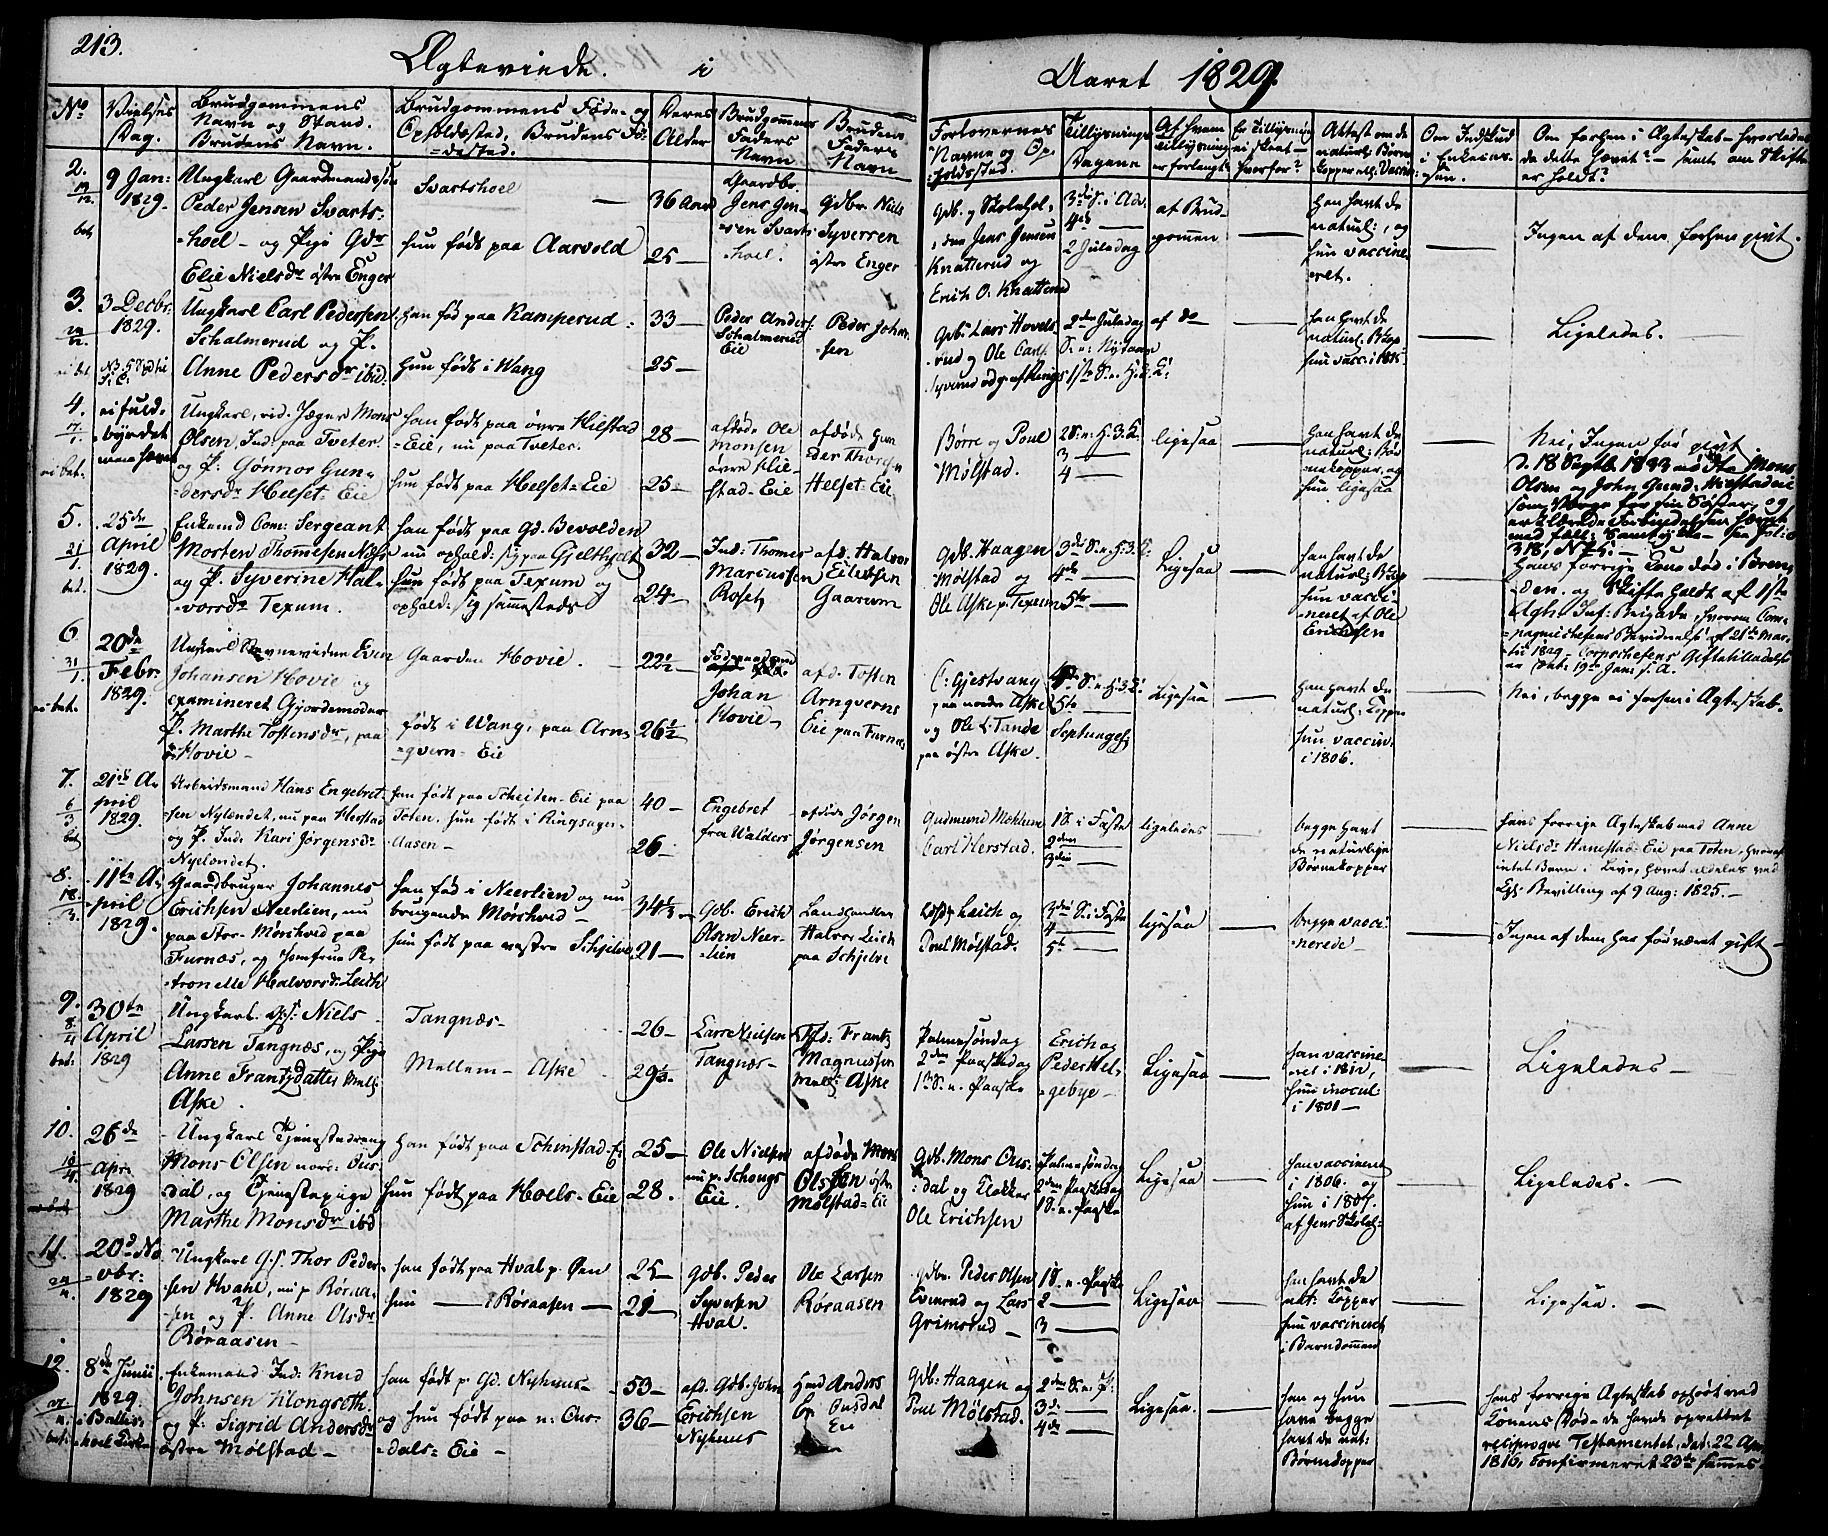 213.
Ægteviede. i Aaret 1829.
No
Vielses Dag.
Brudgommens
Navn og Stand.
Brudens Navn.
Brudgommens Føde- og
Opholdssted, Brudens Fø-
=dested.
Deres
Alder
Brudgommens
Faders
Navn
Brudens
Faders
Navn
Forlovernes
Navne og Op-
holdssted.
Tillysnings
Dagene
Af hvem
tillysning
er forlangt
Er Tillysning
ei skeet-
hvorfor?
Attest om de
naturl: Børne-
kopper ell: Vaccin:
Om Indskud
i Enkekas-
sen.
Om forhen i Ægteskab- hvorledes
da dette hævet?- samt om Skifte
er holdt?
2.
bet
9 Jan:
1829.
Ungkarl Gaardmandssøn
Peder Jensen Svarts-
=hoel- og Pige Gdr
Elie Nielsdr østre Enger
Svartshoel
hun født paa Aarvold
36 Aar
25 —
Gaardbr.
Jens Jen-
sen Svarts
hoel.
Gdbr. Niels
Syversen
østre Enger
Gdb. og Skolehol-
der Jens Jensen
Knatterud og
Erich O. Knatterud
3die S. i Adv:
4de —
2 Juledag
af Brud-
gommen
han havt de
naturl:, og
hun vaccine-
ret.
Ingen af dem forhen givt.
3.
3 Decbr:
1829.
Ungkarl Carl Pedersen
Schalmerud og P.
Anne Pedersdr ibid.
han fød paa Kamperud
hun født i Wang
33 —
25 —
Peder Anders:
Schalmerud
Eie
Peder Johan-
sen
Gdb: Lars Hovels-
rud og Ole Carls:
2den Juledag
S. e: Nytaar
1ste S. e. H. 3. K:
af do
han havt de
naturl: B:kop
hun vacc: i 1815
Ligeledes.
4.
17/1.
ei bet.
ei fuld-
byrdet
men hævet
Ungkarl, vid. Jæger Mons
Olsen, Ind: paa Tveter.
og P: Gønnor Gun-
=dersdr Helset= Eie
han født paa øvre Hielstad
=Eie, nu paa Tveter.
hun født paa Helset= Eie
28 —
25 —
afdøde Ole
Monsen
øvre Hie-
stad=Eie
afdøde Gun
der Thorsen
Helset= Eie
Børre og Poul
Mølstad.
2 S. e: H. 3. K:
3 —
4 —
ligesaa
han havt de
naturl: Bør
nekopper, og
hun ligesaa
Nei, Ingen før givt
d. 18 Septb. 1833 mødte Mons
Olsen og John Gund: Hiestadeie
som Værge for sin Søster, og
erklærede Forbindelsen hævet
med fælles Samtykke
318, N 75.
5.
21/1.
bet.
25de
April
1829.
Enkemd Com: Sergeant
Morten Thomesen
og P. Syverine Hal-
=vorsdr Texum.
han født paa Gd. Bevolden
nu ophold: sig paa Gjelthzolt
hun født paa Texum og
ophold: sig sammesteds
32 —
24 —
Ind: Thomes
Marcussen
Roset
afd. Halvor
Eilertsen
Gaarum
Gdb. Haagen
Mølstad og
Ole Aske p. Texum
3die S. e. H. 3. K:
4de —
5te —
Ligesaa
han havt de
naturl: B:kop
hun vacci-
neret af Ole
Erichsen
Hans forrige Kone død i Bren-
den. og Skifte holdt af 1ste
Agh: Inf: Brigade, hvorom Com-
pagniechefens Bevidnelse af 21de Mar-
tii 1829 - Corpschefens Giftetilladelse
er dat: 19de Janr f. A.
6
31/1.
ei bet:
20de
Febr.
1829.
Ungkarl Stevnevidne Even
Johansen Hovie og
examineret Gjordemoder
P. Marthe Tostensdr, paa
Hovie -
Gaarden Hovie.
født i Wang, paa Arn-
=qvern= Eie
22½ —
26½
Johan
Hovie -
afd. Tosten
Arnqverns
Eie paa Furnæs
C: Gjestvang
paa nordre Aske
og Ole L. Tande
paa østre Aske.
4de S. e. H. 3. K:
5te —
Septuages:
Ligesaa
han havt de
naturl: Kopper
hun vaccin:
i 1806.
Nei, begge ei forhen i Ægteskab.
7.
6/3
bet
21de A-
pril
1829.
Arbeidsmand Hans Engebret-
sen Nylændet, nu paa Herstad
og P. Ind. Kari Jørgensdr
Nyelændet.
han født paa Scheiten= Eie paa
Toten. hun født i Ringsager
Aasen -
40 —
26 —
Engebret
fra Walders
afdøde Jørgen
Jørgensen
Gudmund Mehlum
Carl Herstad.
1 S. i Faste
2den —
3die —
ligeledes
begge havt
de naturlige
Børnekopper
hans forrige Ægteskab med Anne
Nielsdr Hanestad= Eie paa Toten, hvoraf
intet Barn i Live, hævet aldeles ved
Kgl: Bevilling af 9 Aug: 1825.-
8.
18/3.
11te A-
pril
1829.
Gaardbruger Johannes
Erichsen Neerlien, nu
paa Stor- Mørchved paa
Furnæs, og Jomfrue Pe-
=tronelle Halvorsdr Leich
han fød i Neerlien og nu
brugende Mørchved -
hun født paa vestre Schjelve
34½ —
21 —
Gdb. Erich
Olsen Neer-
lien
Landhandler
Halvor Leich
paa Schjelve
Leich og
Poul Mølstad.
3die S. i Faste
4 —
5t —
ligesaa
begge vacci-
nerede -
Ingen af dem har før været gift -
9.
8/4
bet:
30te
April
1829
Ungkarl. Niels
Larsen Tangnæs, og Pige
Anne Frantzdatter Mell:
Aske.
Tangnæs -
Mellem - Aske.
26 —
29½.
Lars Nielsen
Tangnæs -
Afd: Frantz
Magnussen
Mell: Aske
Palmesøndag
2den Paaskedag
1 S. e. Paaske
Erich og
Peder Hel-
=gebye -
Ligesaa
han vaccine-
ret i 1812,
hun inocul
i 1801 -
Ligeledes -
10.
10/4.
26de
Apr:
1829
- Ungkarl Tjenestedreng
Mons Olsen nord: Ous-
dal, og Tjenestepige
Marthe Monsdr ibd
han født paa Schinstad= E.
hun født paa Hoels= Eie
25 —
28.
Ole Nielsen
nu p. Schougs
Eie.
afdøde Mons
Olsen østr
Mølstad= Eie
Gdb. Mons Ous-
dal og Klokker
Ole Erichsen
Palmesøndag
2den Paaskedag
1 S. e. Paaske
Ligesaa
han vaccineret
i 1806. og
hun i 1807.
af Jens Skoleh:
Ligeledes. -
11.
24/4.
20de No-
vbr:
1829
Ungkarl G:s. Thor Peder-
sen Hvahl, nu p Røraa-
sen og P. Anne Olsdr
Røraasen -
han født paa Hval p. Øen
hun — i Røraasen —
25 —
21 —
Gdb. Peder
Syversen
Hval.
Ole Larsen
Røraasen
Gdbr. Peder Olsen
Evenrud og Lars
Grimsrud -
1 S. e. Paaske
2 —
3 —
Ligesaa
han havt de
nat: Kopper
hun vaccineret
i Barndommen
Ligesaa. -
12.
bet:
8de Junii
1829.
i Baltis-
=hoel Kirk-
Enkemand Ind: Knud
Johnsen Klongreth.
og P: Sigrid Andersdr
østre Mølstad -
han født p. Gd. Nyhuus -
og hun født paa n: Ous-
=dals= Eie -
53 —
36 —
afd. Gdb. John
Erichsen
Nyhuus
Hmd Anders
Ousdal
Eie
Gdb: Haagen og
Poul Mølstad.
2den S. e: P:
3de —
4de —
Ligesaa.
han og hun
have begge
havt de nat:
Børnekopper
hans forrige Ægteskab ophørt ved
Konens Død- de havde oprettet
reciproqve Testamentet, dat: 22 Apr:
1816, confirmeret 23de sammes.